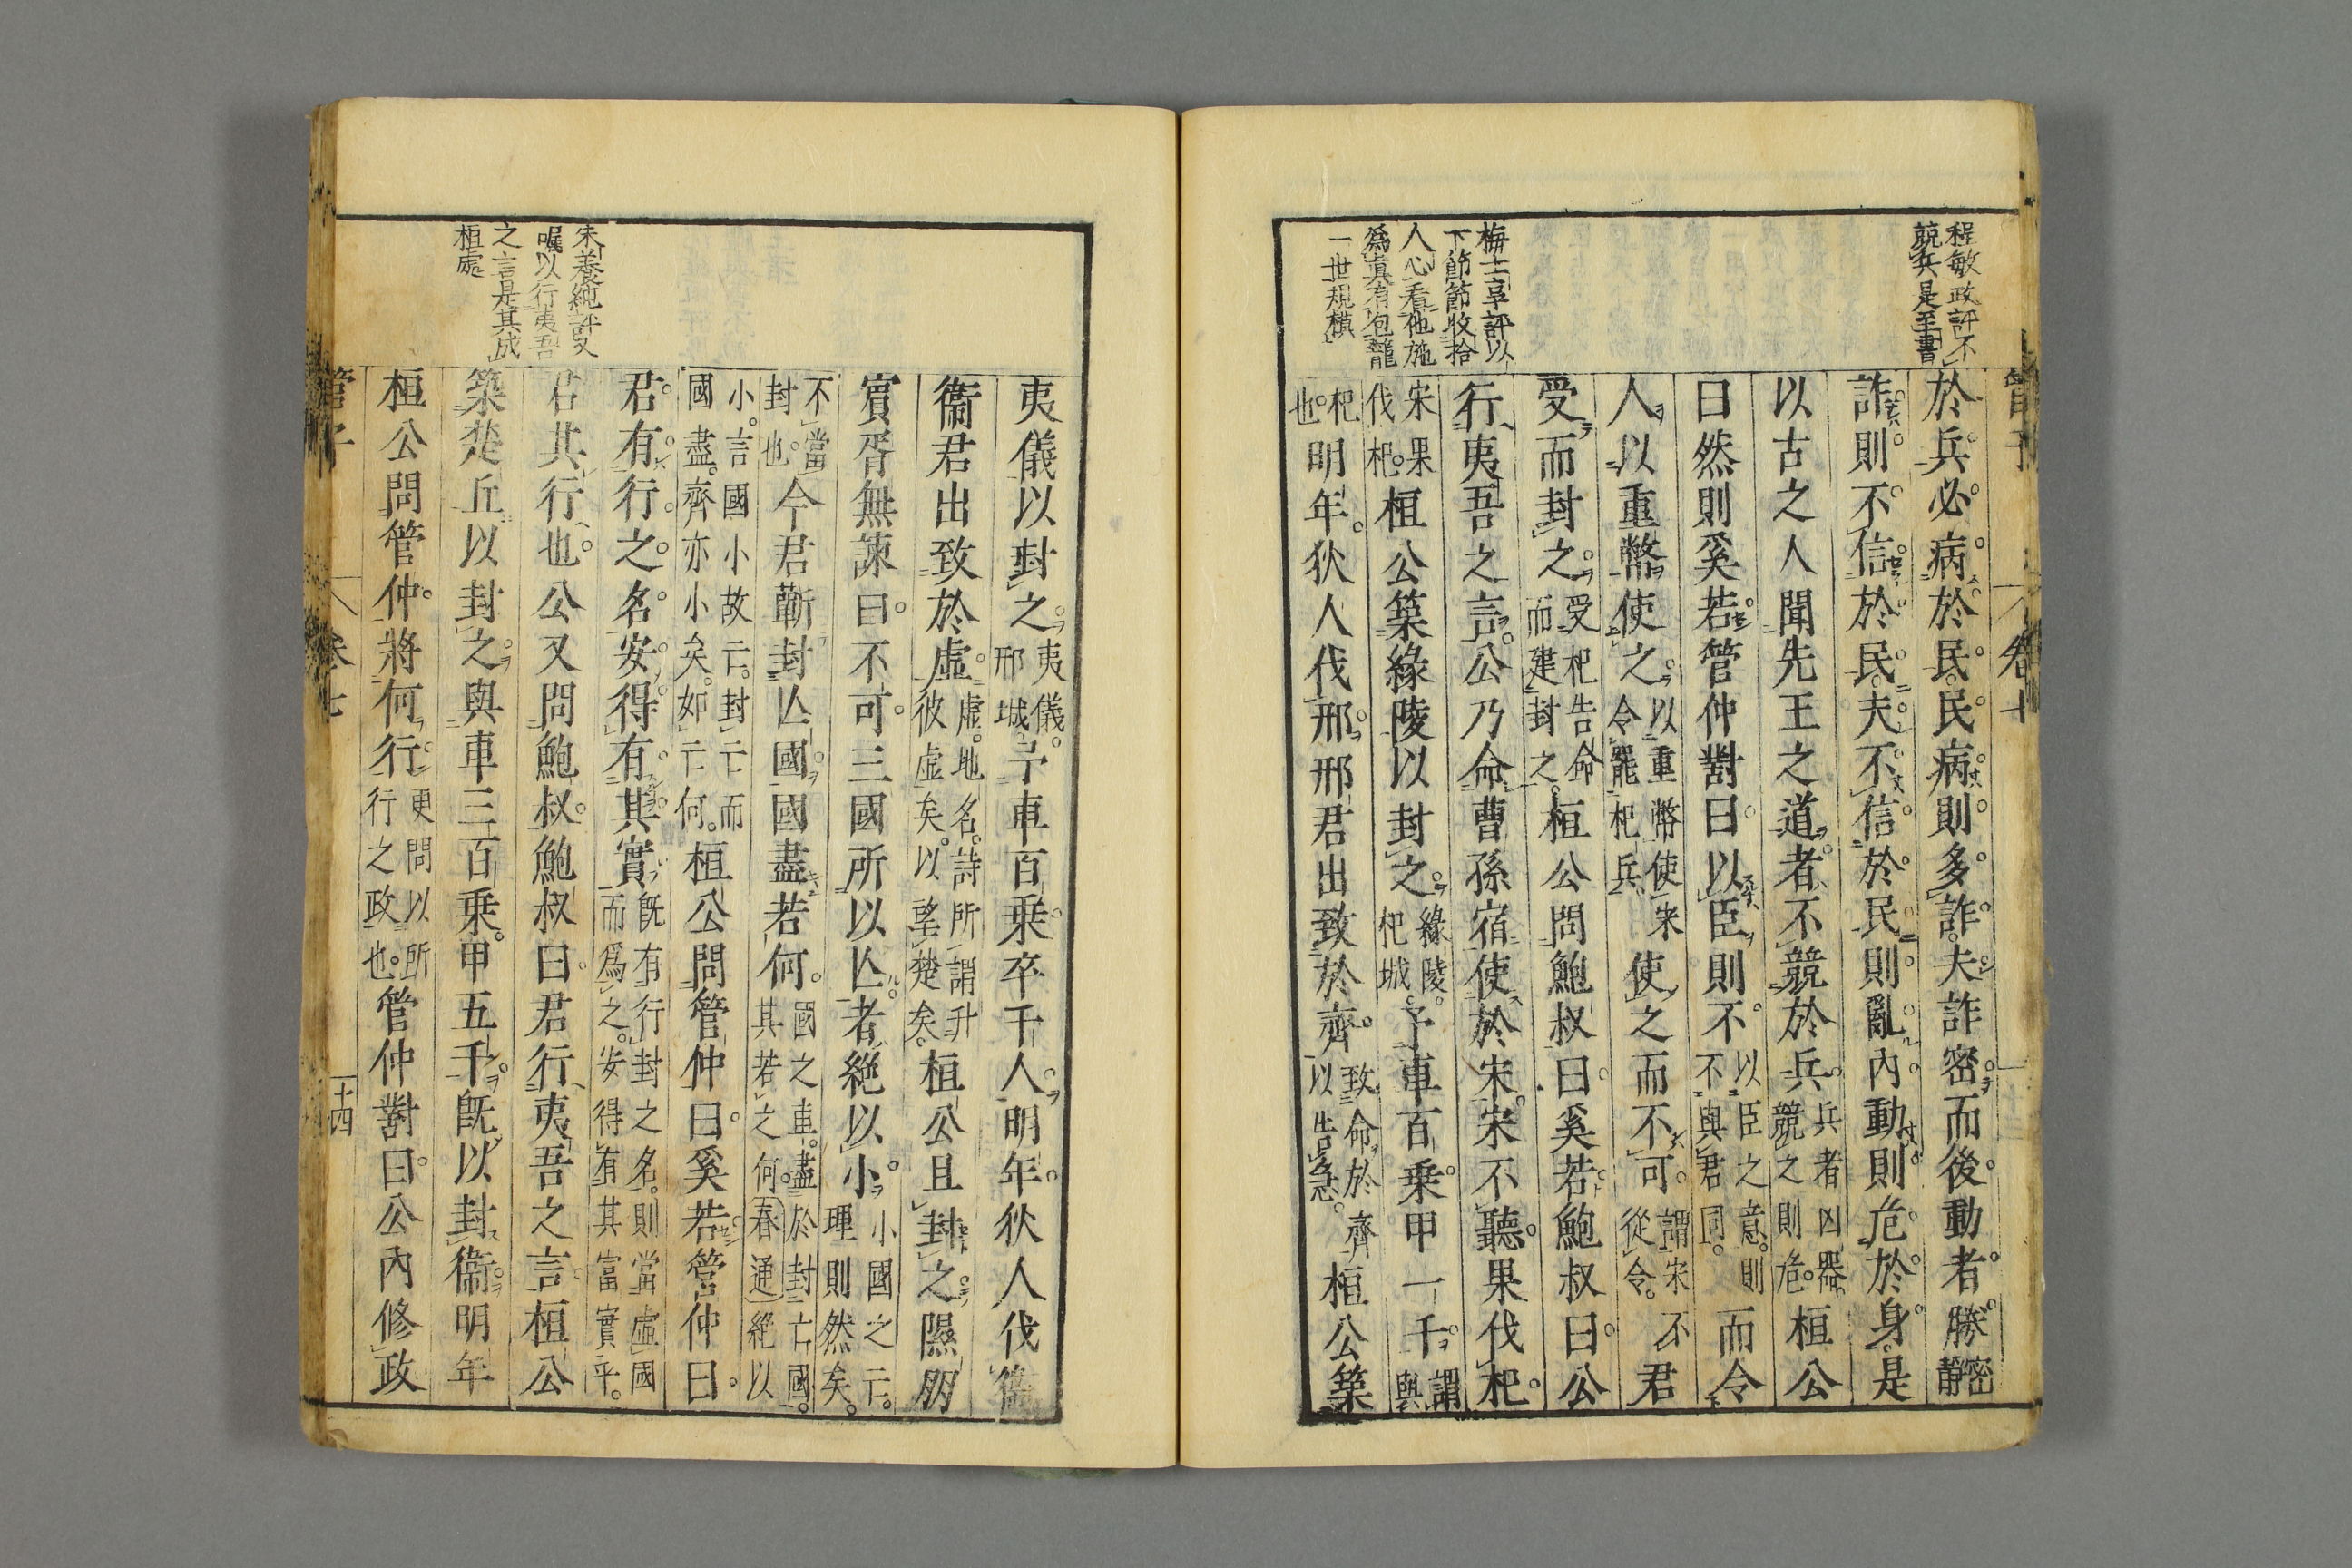 程敏政評不
競兵是至書
梅士享評以
下節節收拾
人心看他施
爲真有包籠
一世規模
管子
卷七
於兵必病於民民病則多詐夫詐密而後動者勝密靜
詐則不信於民夫不信於民則亂內動則危於身是
以古之人聞先王之道者不競於兵兵者凶器競之則危桓公
曰然則奚若管仲對曰以臣則不以臣之意則不與君同而令
人以重幣使之以重幣使宋令罷杞兵使之而不可謂宋不從令君
受而封之受杞告命而建封之桓公問鮑叔曰奚若鮑叔曰公
行夷吾之言公乃命曹孫宿使於宋宋不聽果伐杞
宋果伐杞桓公築緣陵以封之緣陵杞城予車百乗甲一千謂與
杞也明年狄人伐邢邢君出致於齊致命於齊以告急桓公築
朱養純評又
嘱以行夷吾
之言是其成
桓處
夷儀以封之夷儀邢城予車百乗卒千人明年狄人伐衞
衞君出致於虛虛地名詩所謂升彼虛矣以望楚矣桓公且封之隰朋
賓胥無諫曰不可三國所以亾者絶以小小國之亡理則然矣
不當封也今君蘄封亾國國盡若何國之車盡於封亡國其若之何春通絕以
小言國小故亡封亡而國盡齊亦小矣如何桓公問管仲曰奚若管仲曰
君有行之名安得有其實旣有行封之名則當虛國而爲之安得有其富實乎
君其行也公又問鮑叔鮑叔曰君行夷吾之言桓公
築楚丘以封之與車三百乗甲五千旣以封衞明年
桓公問管仲將何行更問以所行之政也管仲對曰公內修政
管子
卷七
十四